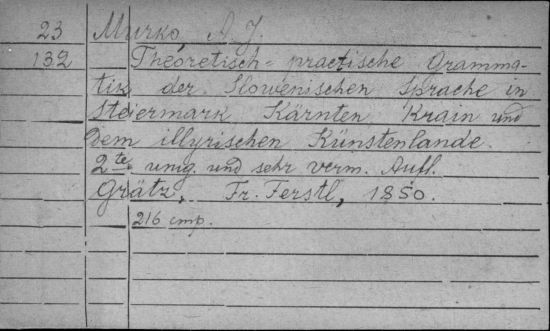 23 Murko, A. J.
132 Theoretisch-practische Gramma-
tik der Slowenischen Sprache in
Steiermark Kärnten Krain und
dem illyrischen Künstenlande.
2te umg. und sehr verm. Aufl.
Grätz, Fr. Ferstl, 1850.
216 стр.